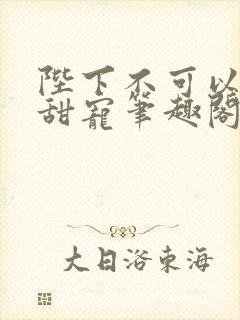 陛下不可以
甜寵筆趣閣
大日洛東海